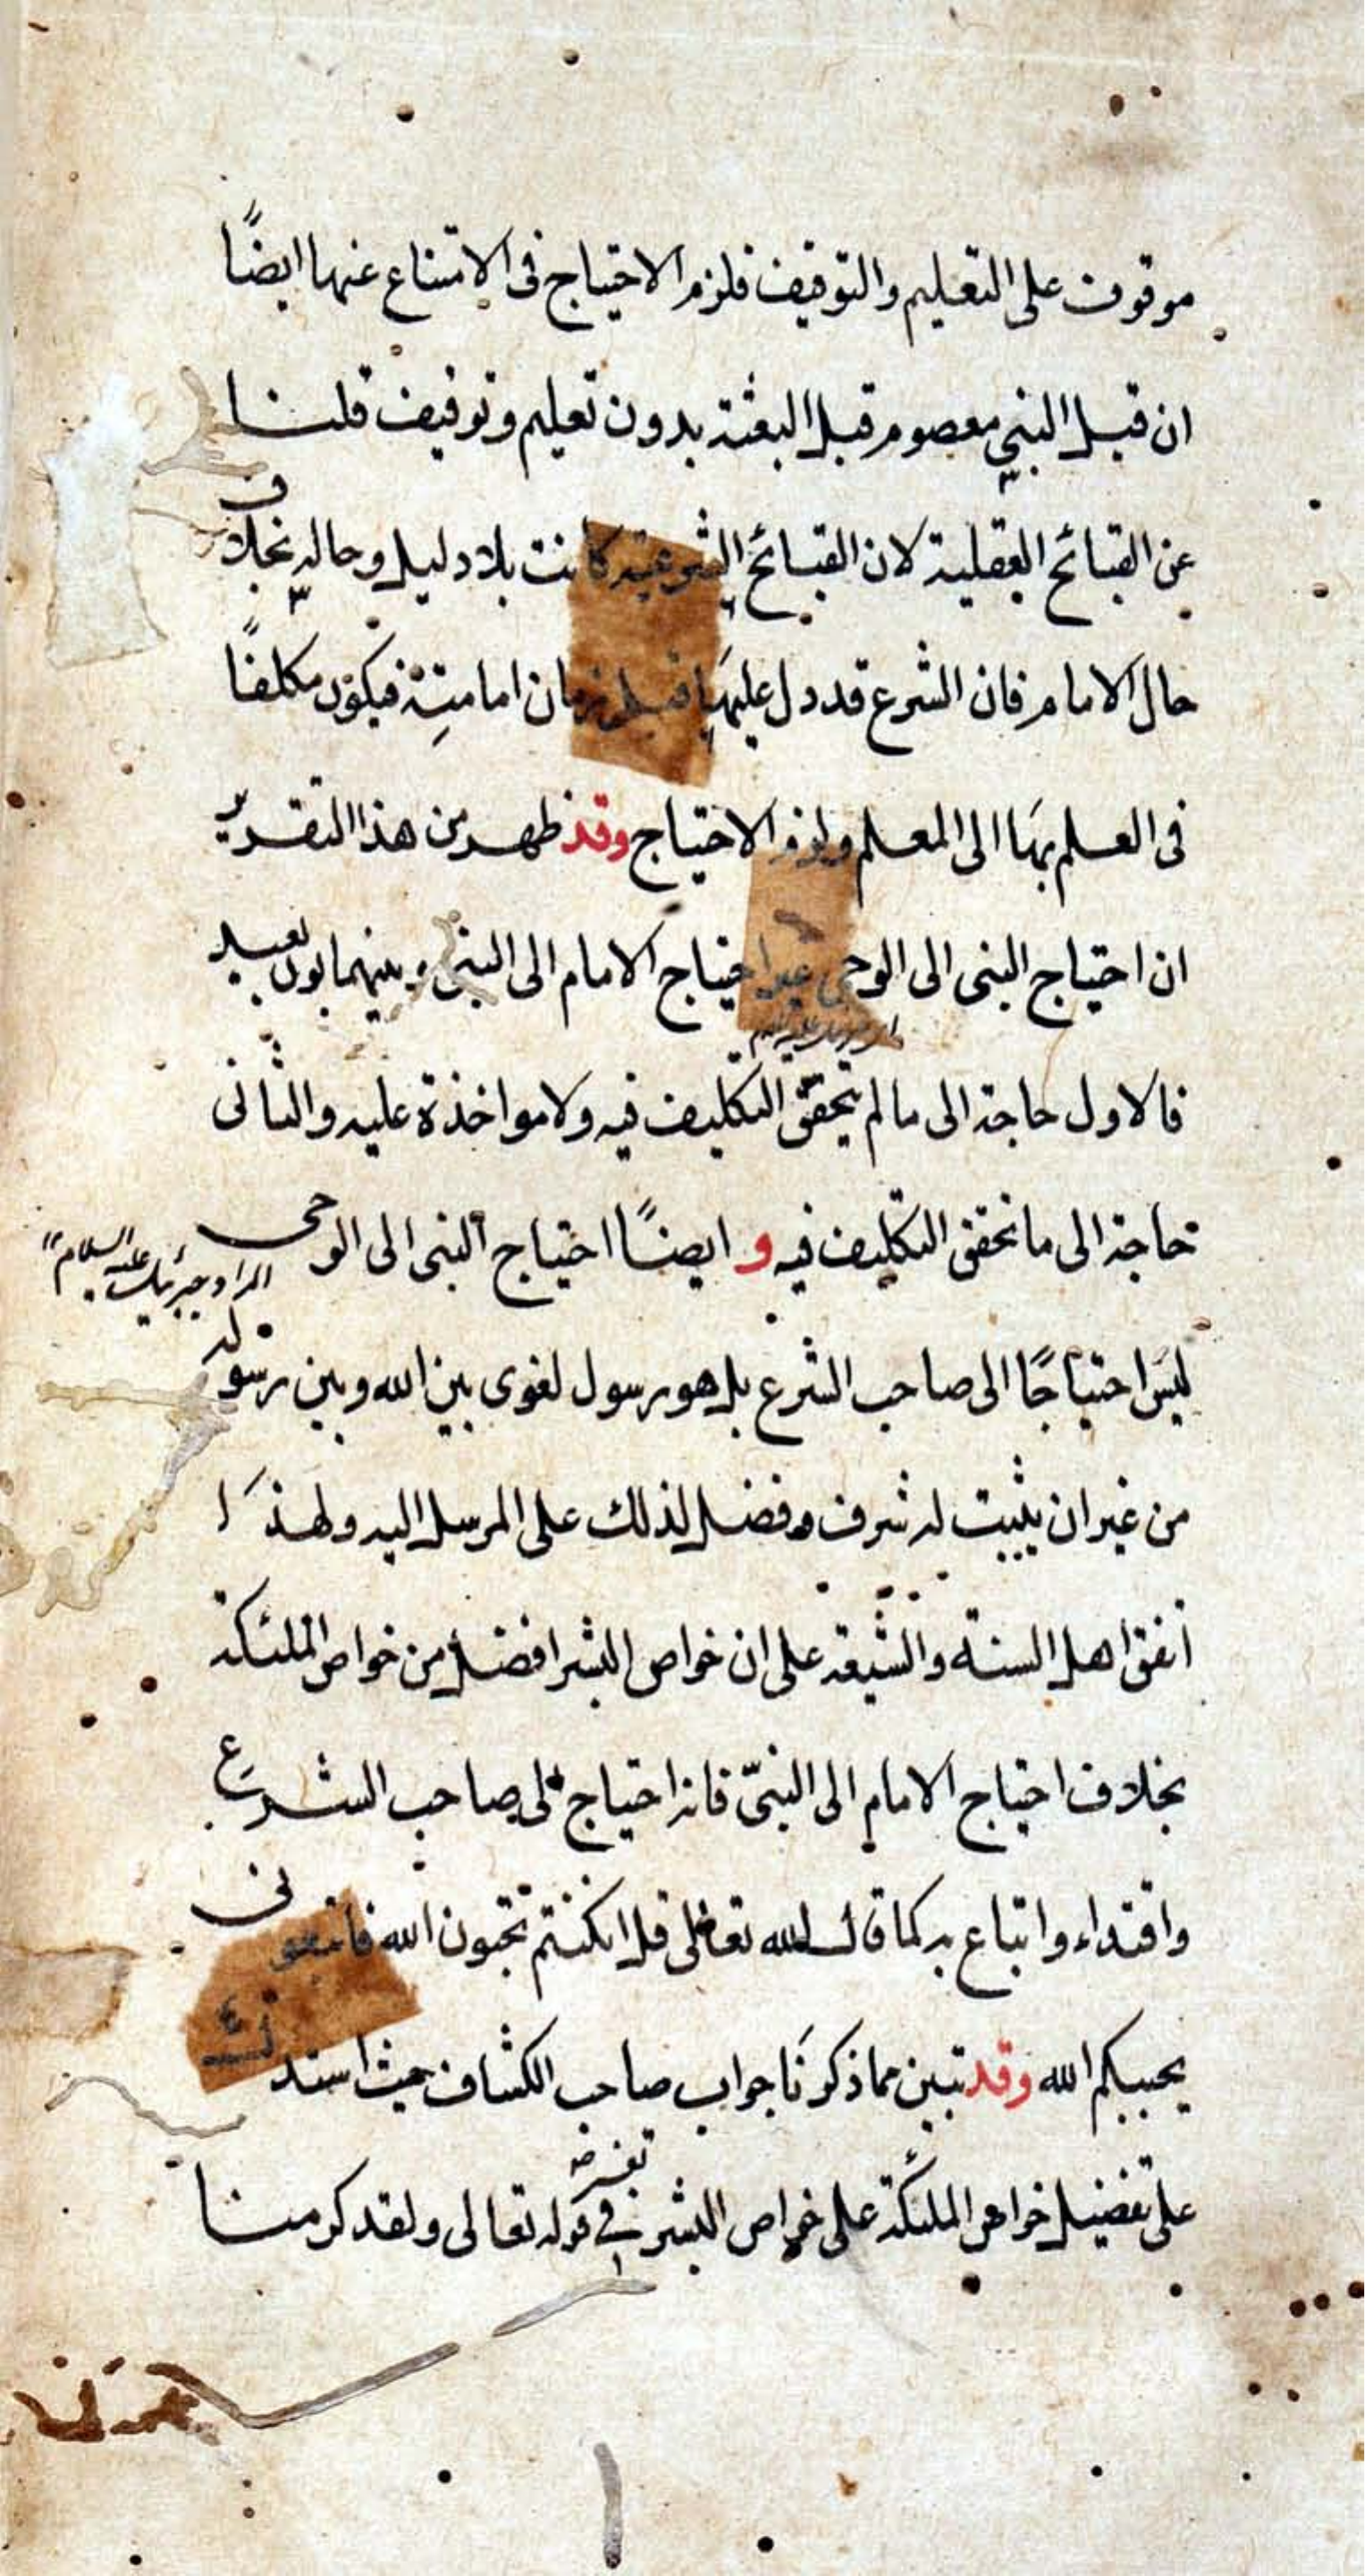 موقوف على التعليم والتوقيف فلزم الاحتياج فى الامتناع عنها ايضًا
ان قيل النبي معصوم قبل البعثة بدون تعليم وتوقيف قلنا
عن القبائح العقلية لان القبائح الشرعية كانت بلا دليل وحاله بخلاف
حال الامام فان الشرع قد دل عليها قبل زمان امامته فيكون مكلفًا
فى العلم بها الى المعلم ولزم الاحتياج وقد ظهر من هذا التقرير
ان احتياج النبى الى الوحى غير احتياج الامام الى النبى وبينهما بون بعيد
فالاول حاجة الى ما لم يتحقق التكليف فيه ولا مواخذة عليه والثانى
حاجة الى ما تحقق التكليف فيه و ايضًا احتياج النبى الى الوحى
المراد جبرئيل عليه السلام
ليس احتياجًا الى صاحب الشرع بل هو رسول لغوى بين الله وبين رسوله
من غير ان يثبت له شرف وفضل لذلك على المرسل اليه ولهذا
اتفق اهل السنة والشيعة على ان خواص البشر افضل من خواص الملئكة
بخلاف احتياج الامام الى النبيّ فانه احتياج الى صاحب الشرع
واقتداء واتباع به كما قال الله تعالى قل ان كنتم تحبون الله فاتبعونى
يحببكم الله وقد تبين مما ذكرنا جواب صاحب الكشاف حيث استدل
على تفضيل خواص الملئكة على خواص البشر فى قوله تعالى ولقد كرمنا